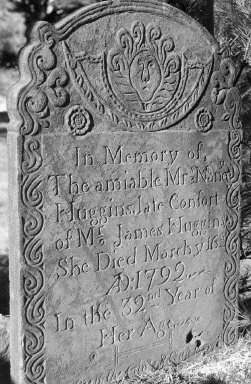 In Memory of,
The amiable Mrs. Nancy
Huggins, late Confort
of Mr. James Huggins
She Died March ye 16th
AD. 1792
In the 32nd Year of
Her Age